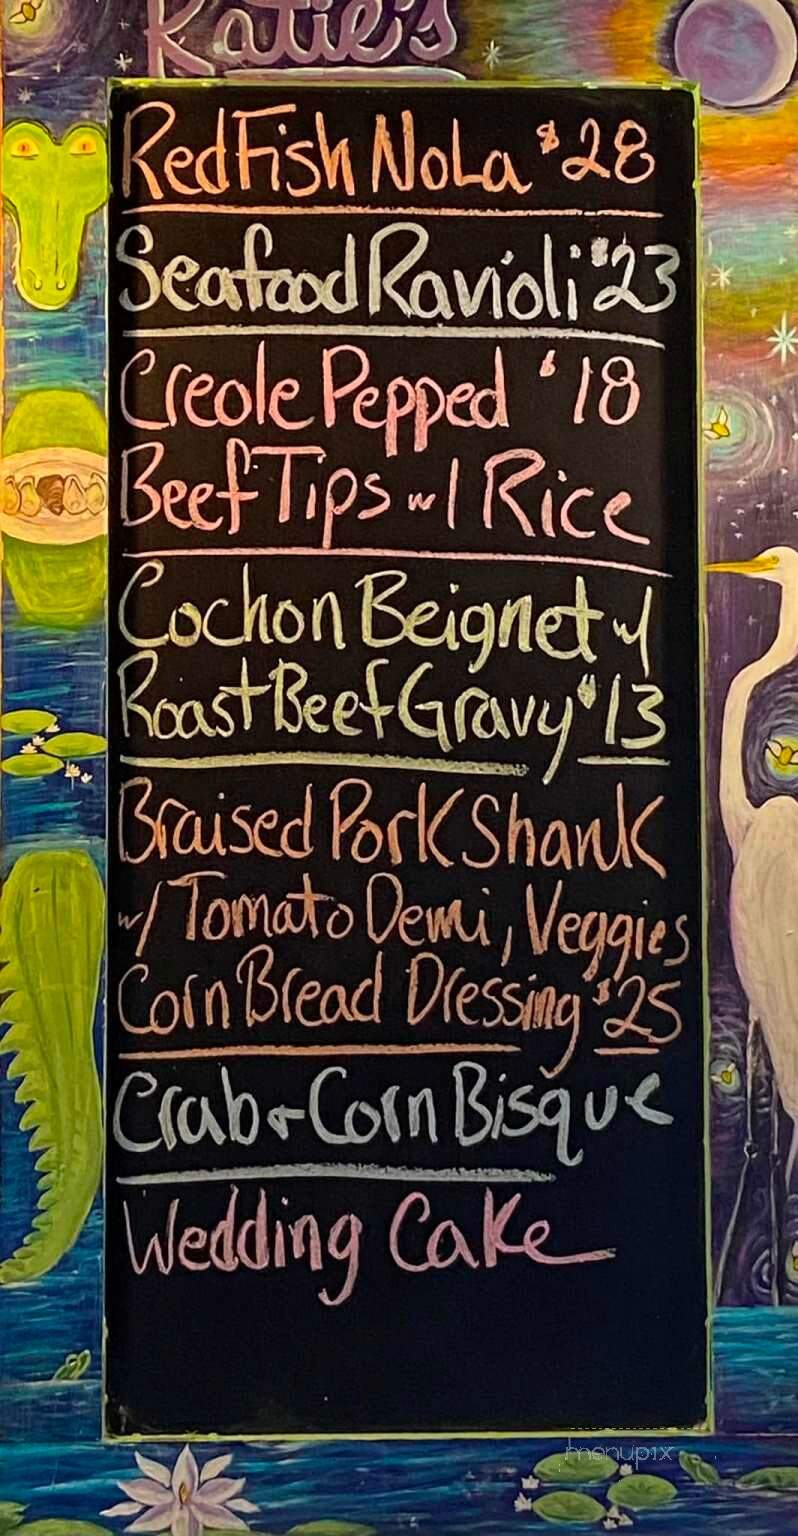 Katie's
RedFish NoLa $28
Seafood Ravioli $23
Creole Pepped $18
Beef Tips w/ Rice
Cochon Beignet w/
Roast Beef Gravy $13
Braised Pork Shank
w/ Tomato Demi, Veggies
Corn Bread Dressing $25
Crab & Corn Bisque
Wedding Cake
menupix